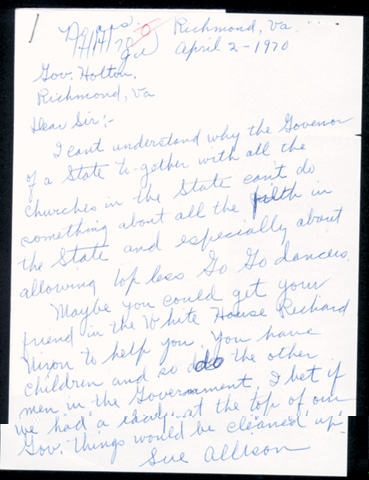 Richmond, Va.
April 2-1970
Gov. Holton.
Richmond, Va
Dear Sir;-
I cant understand why the Govenor
of a State to-gether with all the
churches in the State can't do
something about all the filth in
the State and especially about
allowing top less Go Go dancers.
Maybe you could get your
friend in the White House Richard
Nixon to help you. You have
children and so do the other
men in the Government. I bet if
we had a lady at the top of our
Gov. things would be cleaned up.
Sue Allison